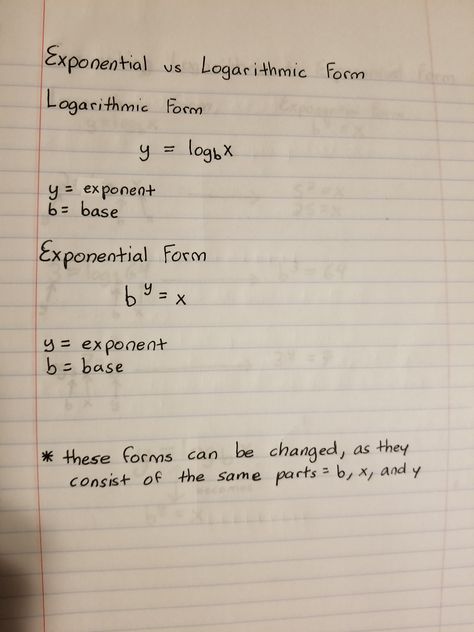 Exponential vs Logarithmic Form
Logarithmic Form
y = log_b x
y = exponent
b = base
Exponential Form
b^y = x
y = exponent
b = base
* these forms can be changed, as they
consist of the same parts = b, x, and y